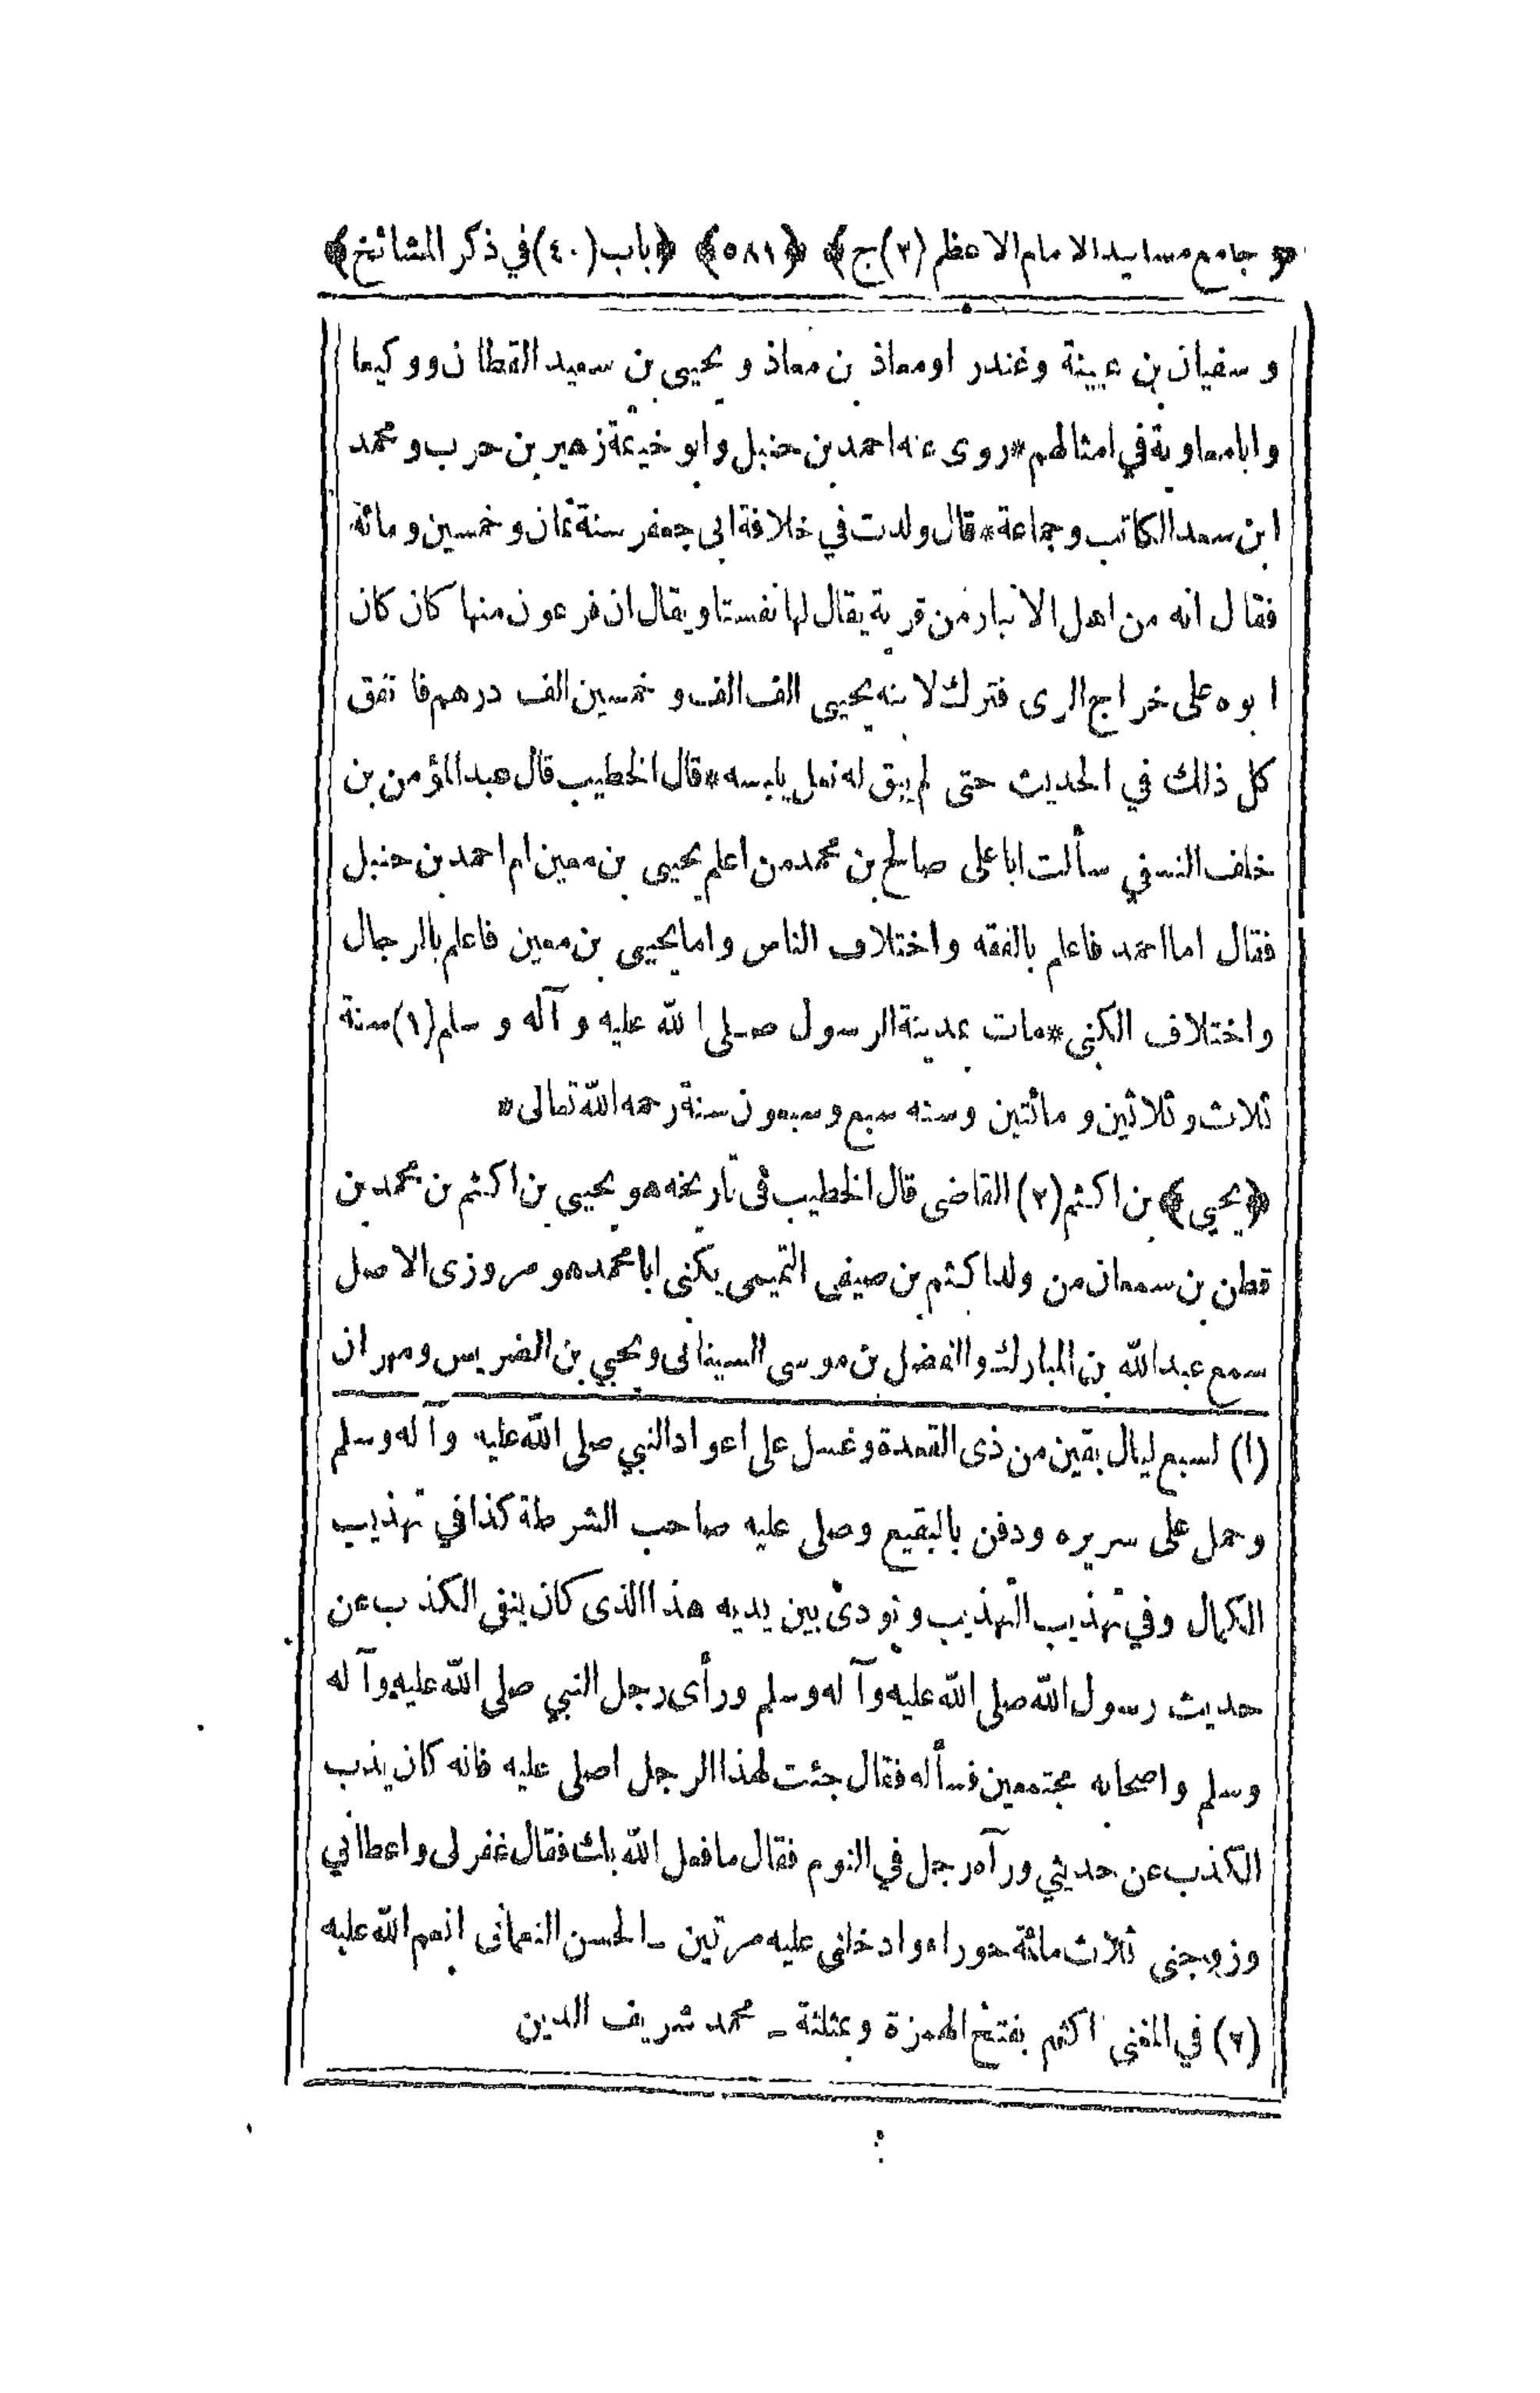 ﴿جامع مسانيد الامام الاعظم (٢) ج﴾ ﴿٥٨١﴾ ﴿باب (٤٠) في ذكر المشائخ﴾
و سفيان بن عيينة وغندر او معاذ بن معاذ و يحيى بن سعيد القطان ووكيعا
وابا معاوية في امثالهم * روى عنه احمد بن حنبل وابو خيثمة زهير بن حرب و محمد
ابن سعد الكاتب وجماعة * قال ولدت في خلافة ابى جعفر سنة ثمان و خمسين و مائة
فقال انه من اهل الانبار من قرية يقال لها نفستا ويقال ان فرعون منها كان كان
ابوه على خراج الرى فترك لابنه يحيى الف الف و خمسين الف درهم فانفق
كل ذلك في الحديث حتى لم يبق له نعل يلبسه * قال الخطيب قال عبد المؤمن بن
خلف النسفي سألت ابا على صالح بن محمد من اعلم يحيى بن معين ام احمد بن حنبل
فقال اما احمد فاعلم بالفقه واختلاف الناس واما يحيى بن معين فاعلم بالرجال
واختلاف الكنى * مات بمدينة الرسول صلى الله عليه و آله و سلم (١) سنة
ثلاث و ثلاثين و مائتين وسنه سبع وسبعون سنة رحمه الله تعالى *
﴿يحيى﴾ بن اكثم (٢) القاضى قال الخطيب فى تاريخه هو يحيى بن اكثم بن محمد بن
قطن بن سمعان من ولد اكثم بن صيفى التميمى يكنى ابا محمد هو مروزى الاصل
سمع عبد الله بن المبارك والفضل بن موسى السينانى ويحيى بن الضريس ومهران
(١) لسبع ليال بقين من ذى القعدة وغسل على اعواد النبي صلى الله عليه وآله وسلم
وحمل على سريره ودفن بالبقيع وصلى عليه صاحب الشرطة كذا في تهذيب
الكمال وفي تهذيب التهذيب ونودى بين يديه هذا الذى كان ينفى الكذب عن
حديث رسول الله صلى الله عليه وآله وسلم ورأى رجل النبي صلى الله عليه وآله
وسلم واصحابه مجتمعين فسأله فقال جئت لهذا الرجل اصلى عليه فانه كان يذب
الكذب عن حديثي ورآه رجل في النوم فقال ما فعل الله بك فقال غفر لى واعطاني
وزوجنى ثلاث مائة حوراء وادخلنى عليه مرتين ـ الحسن النعمانى انعم الله عليه
(٢) في المغنى اكثم بفتح الهمزة وبمثلثة ـ محمد شريف الدين